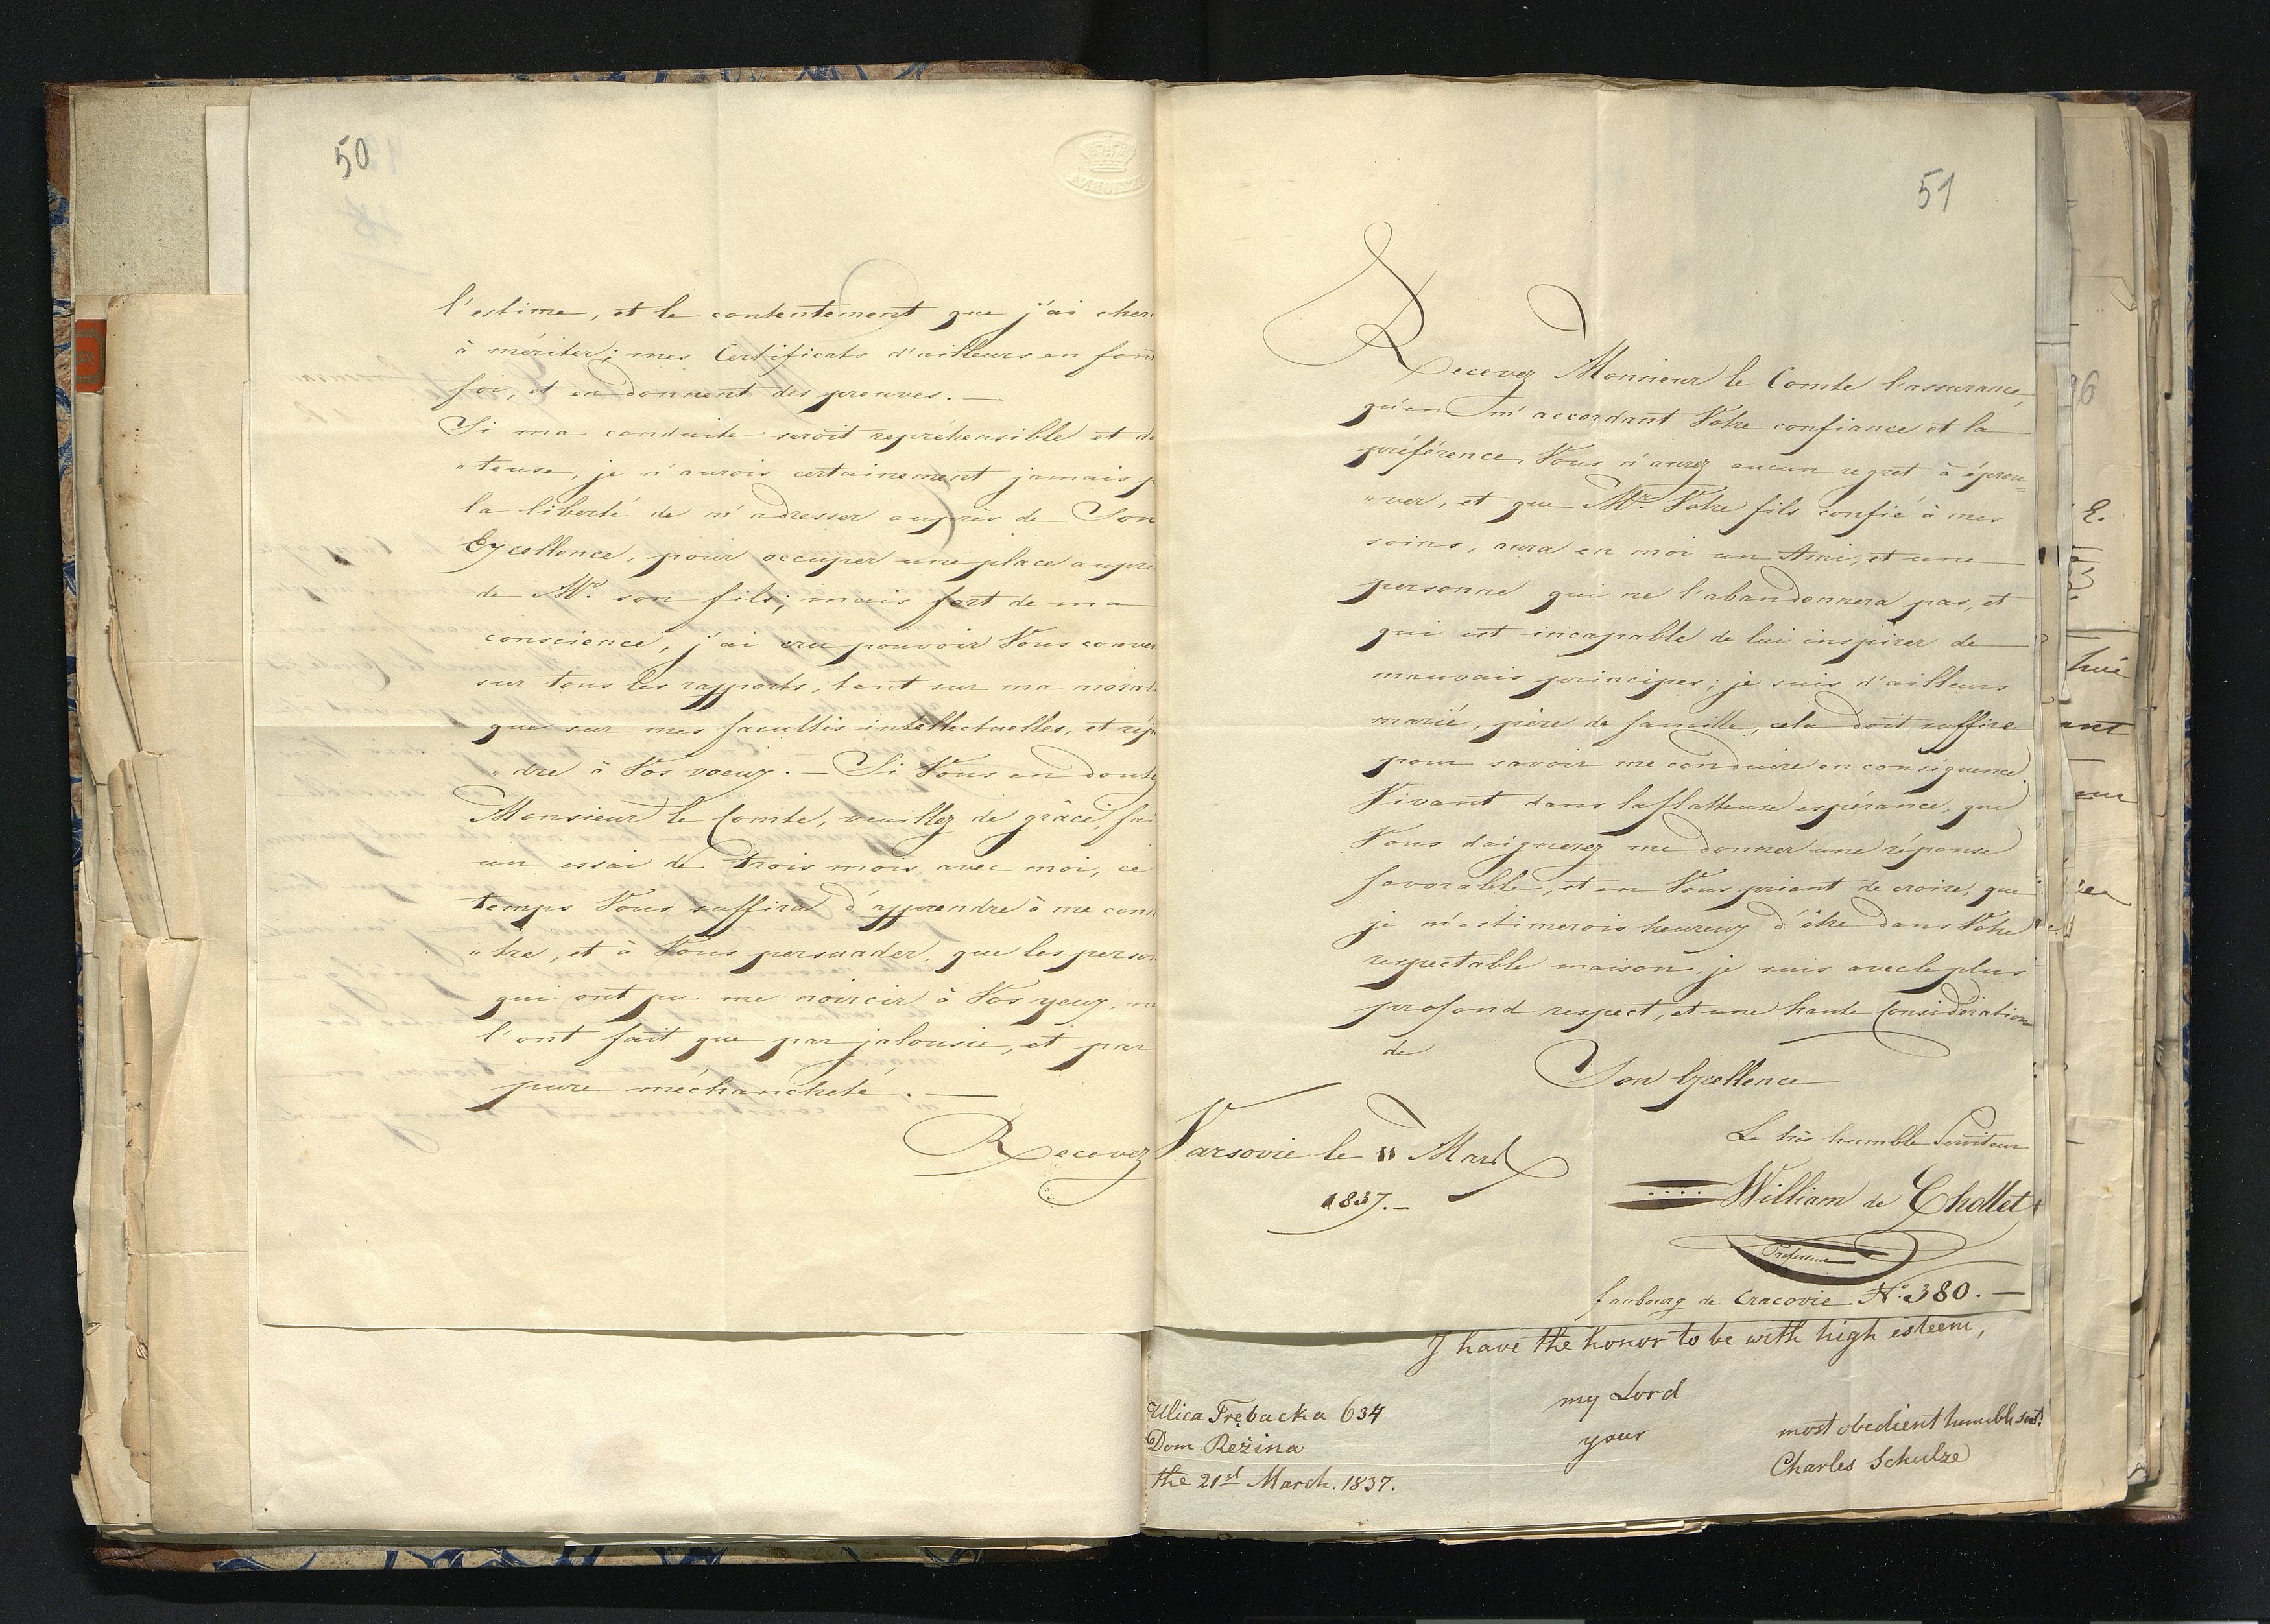 50
l'estime, et le contentement que j'ai cher
à mériter; mes Certificats d'ailleurs en font
foi, et en donnent des preuves. —
Si ma conduite seroit repréhensible et do
„teuse, je n'aurois certainement jamais p
la liberté de m'adresser auprès de Son
Excellence, pour occuper une place auprè
de Mr. son fils; mais fort de ma
conscience, j'ai cru pouvoir Vous conve
sur tous les rapports, tant sur ma moral
que sur mes facultés intellectuelles, et rép
„dre à Vos voeux. — Si Vous en doute
Monsieur le Comte, veuillez de grâce, fai
un essai de trois mois avec moi, ce
temps Vous suffira d'apprendre à me conn
„tre, et à Vous persuader, que les person
qui ont pu me noircir à Vos yeux, ne
l'ont fait que par jalousie, et par
pure méchancheté. —
Recevez
51
Recevez Monsieur le Comte l'assurance,
qu'en m'accordant Votre confiance et la
préférence, Vous n'aurez aucun regret à éprou=
„ver, et que Mr. Votre fils confié à mes
soins, aura en moi un Ami, et une
personne qui ne l'abandonnera pas, et
qui est incapable de lui inspirer de
mauvais principes; je suis d'ailleurs
marié, père de famille, cela doit suffire
pour savoir me conduire en conséquence.
Vivant dans la flatteuse espérance, que
Vous daignerez me donner une réponse
favorable, et en Vous priant de croire, que
je m'estimerois heureux d'être dans Votre
respectable maison, je suis avec le plus
profond respect, et une haute Considération
de
Son Excellence
Le très humble Serviteur
Varsovie le 11 Mars
1837. —
William de Chollet
Professeur
faubourg de Cracovie No. 380. —
I have the honor to be with high esteem,
my Lord
your
most obedient humble sert.
Charles Schulze
Ulica Trębacka 634
Dom Režina
the 21st March. 1837.